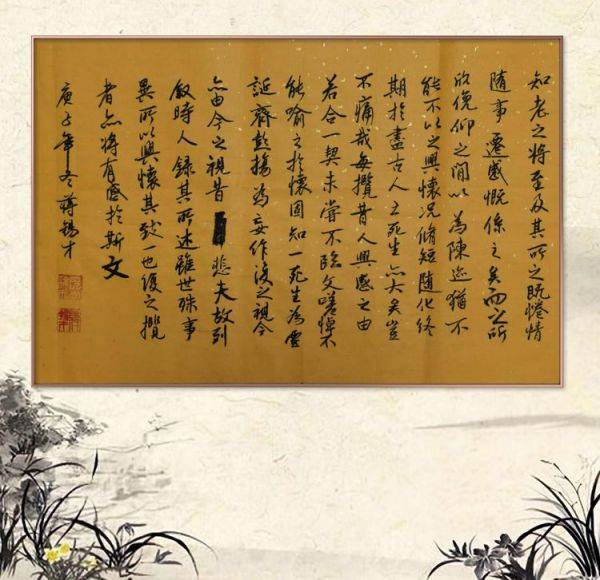 知老之将至及其所之既惓情
随事遷感慨係之矣向之所
欣俛仰之間以為陳迹猶不
能不以之興懷况脩短随化終
期於盡古人云死生亦大矣豈
不痛哉每攬昔人興感之由
若合一契未嘗不臨文嗟悼不
能喻之於懷固知一死生為虚
誕齊彭殤為妄作後之視今
亦由今之視昔悲夫故列
叙時人録其所述雖世殊事
異所以興懷其致一也後之攬
者亦将有感於斯文
庚子年冬